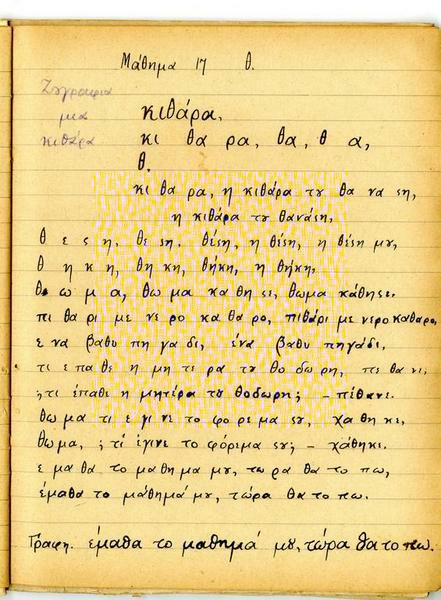 Μάθημα 17 θ.
Ζωγραφια
μια
κιθάρα
κιθάρα,
κι θα ρα, θα, θ α,
θ.
κι θα ρα, η κιθάρα τȣ θα να ση,
η κιθάρα τȣ θανάση,
θ ε σ η. θε ση. θέση, η θέση, η θέση μȣ,
θ η κ η, θη κη, θήκη, η θήκη,
θ ω μ α, θω μα κα θη σε, θωμα κάθησε.
πι θα ρι με νε ρο κα θα ρο, πιθάρι με νερο καθαρο,
ε να βαθυ πη γα δι, ένα βαθυ πηγάδι,
τι ε πα θε η μη τε ρα τȣ θο δω ρη, πε θα νε.
; τι έπαθε η μητέρα τȣ θοδωρη; – πέθανε.
θω μα τι ε γι νε το φο ρε μα σȣ, χα θη κε,
θωμα, ; τί έγινε το φόρεμα σȣ; – χάθηκε.
ε μα θα το μα θη μα μȣ, τω ρα θα το πω,
έμαθα το μάθημά μȣ, τώρα θα το πω.
Γραφη. έμαθα το μαθημά μȣ, τώρα θα το πω.